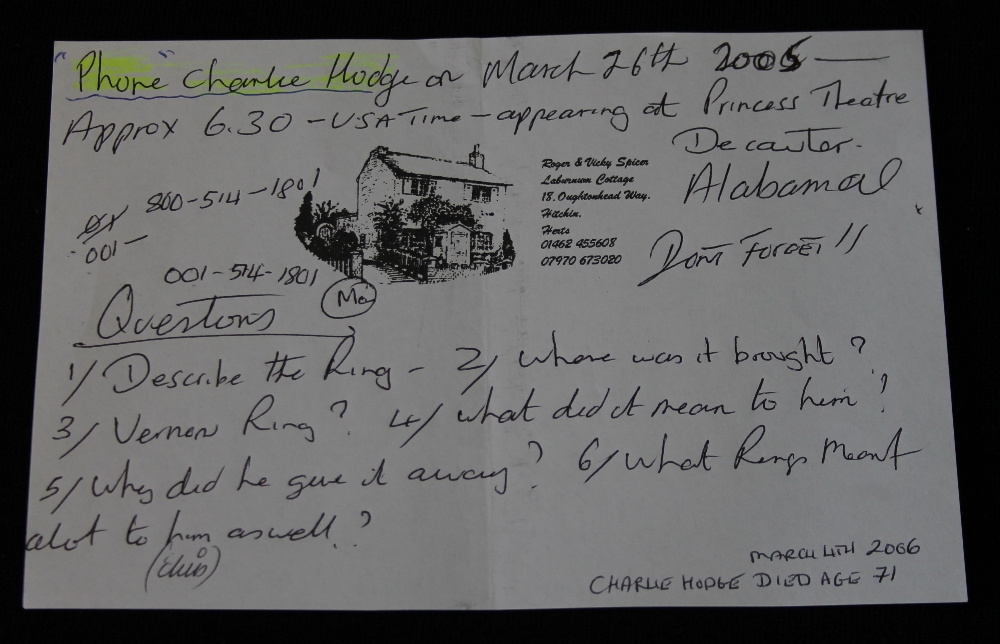 "Phone" Charlie Hodge on March 26th 2005 —
Approx 6.30 - USA Time - appearing at Princess Theatre
Decautor.
Alabama
800-514-1801
001-
001-514-1801
Roger & Vicky Spicer
Laburnum Cottage
18. Oughtonhead Way.
Hitchin.
Herts
01462 455608
07970 673020
Dont Forget !!
Questions
1/ Describe the Ring - 2/ where was it brought ?
3/ Vernon Ring? 4/ what did it mean to him ?
5/ Why did he give it away? 6/ What Rings Meant
alot to him aswell ?
(Elvis)
MARCH 4TH 2006
CHARLIE HODGE DIED AGE 71